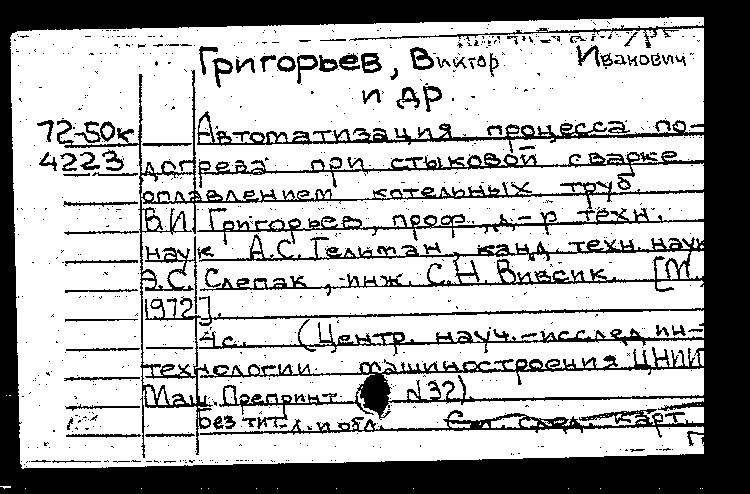 Григорьев, Виктор Иванович
и др.
72-50к Автоматизация процесса по-
4223 догрева при стыковой сварке
оплавлением котельных труб.
В.И. Григорьев, проф., д-р техн.
наук А.С. Гельман, канд. техн. наук
Э.С. Слепак, инж. С.Н. Вивсик. [М.,
1972].
4с. (Центр. науч.-исслед ин-
технологии машиностроения ЦНИИ
Маш. Препринт №32).
без тит. л. и обл. См. след. карт.